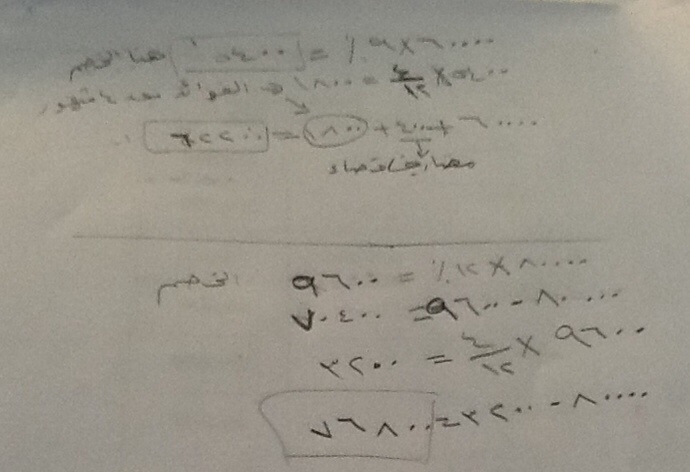 ٦٠٠٠٠ × ٩٪ = ٥٤٠٠ هنا الخصم
٥٤٠٠ × ٤/١٢ = ١٨٠٠ ⇒ الفوائد بعد ٤ شهور
٦٠٠٠٠ + ٤٠٠ + ١٨٠٠ = ٦٢٢٠٠
مصاريف قضاء
٨٠٠٠٠ × ١٢٪ = ٩٦٠٠ الخصم
٨٠٠٠٠ - ٩٦٠٠ = ٧٠٤٠٠
٩٦٠٠ × ٤/١٢ = ٣٢٠٠
٨٠٠٠٠ - ٣٢٠٠ = ٧٦٨٠٠